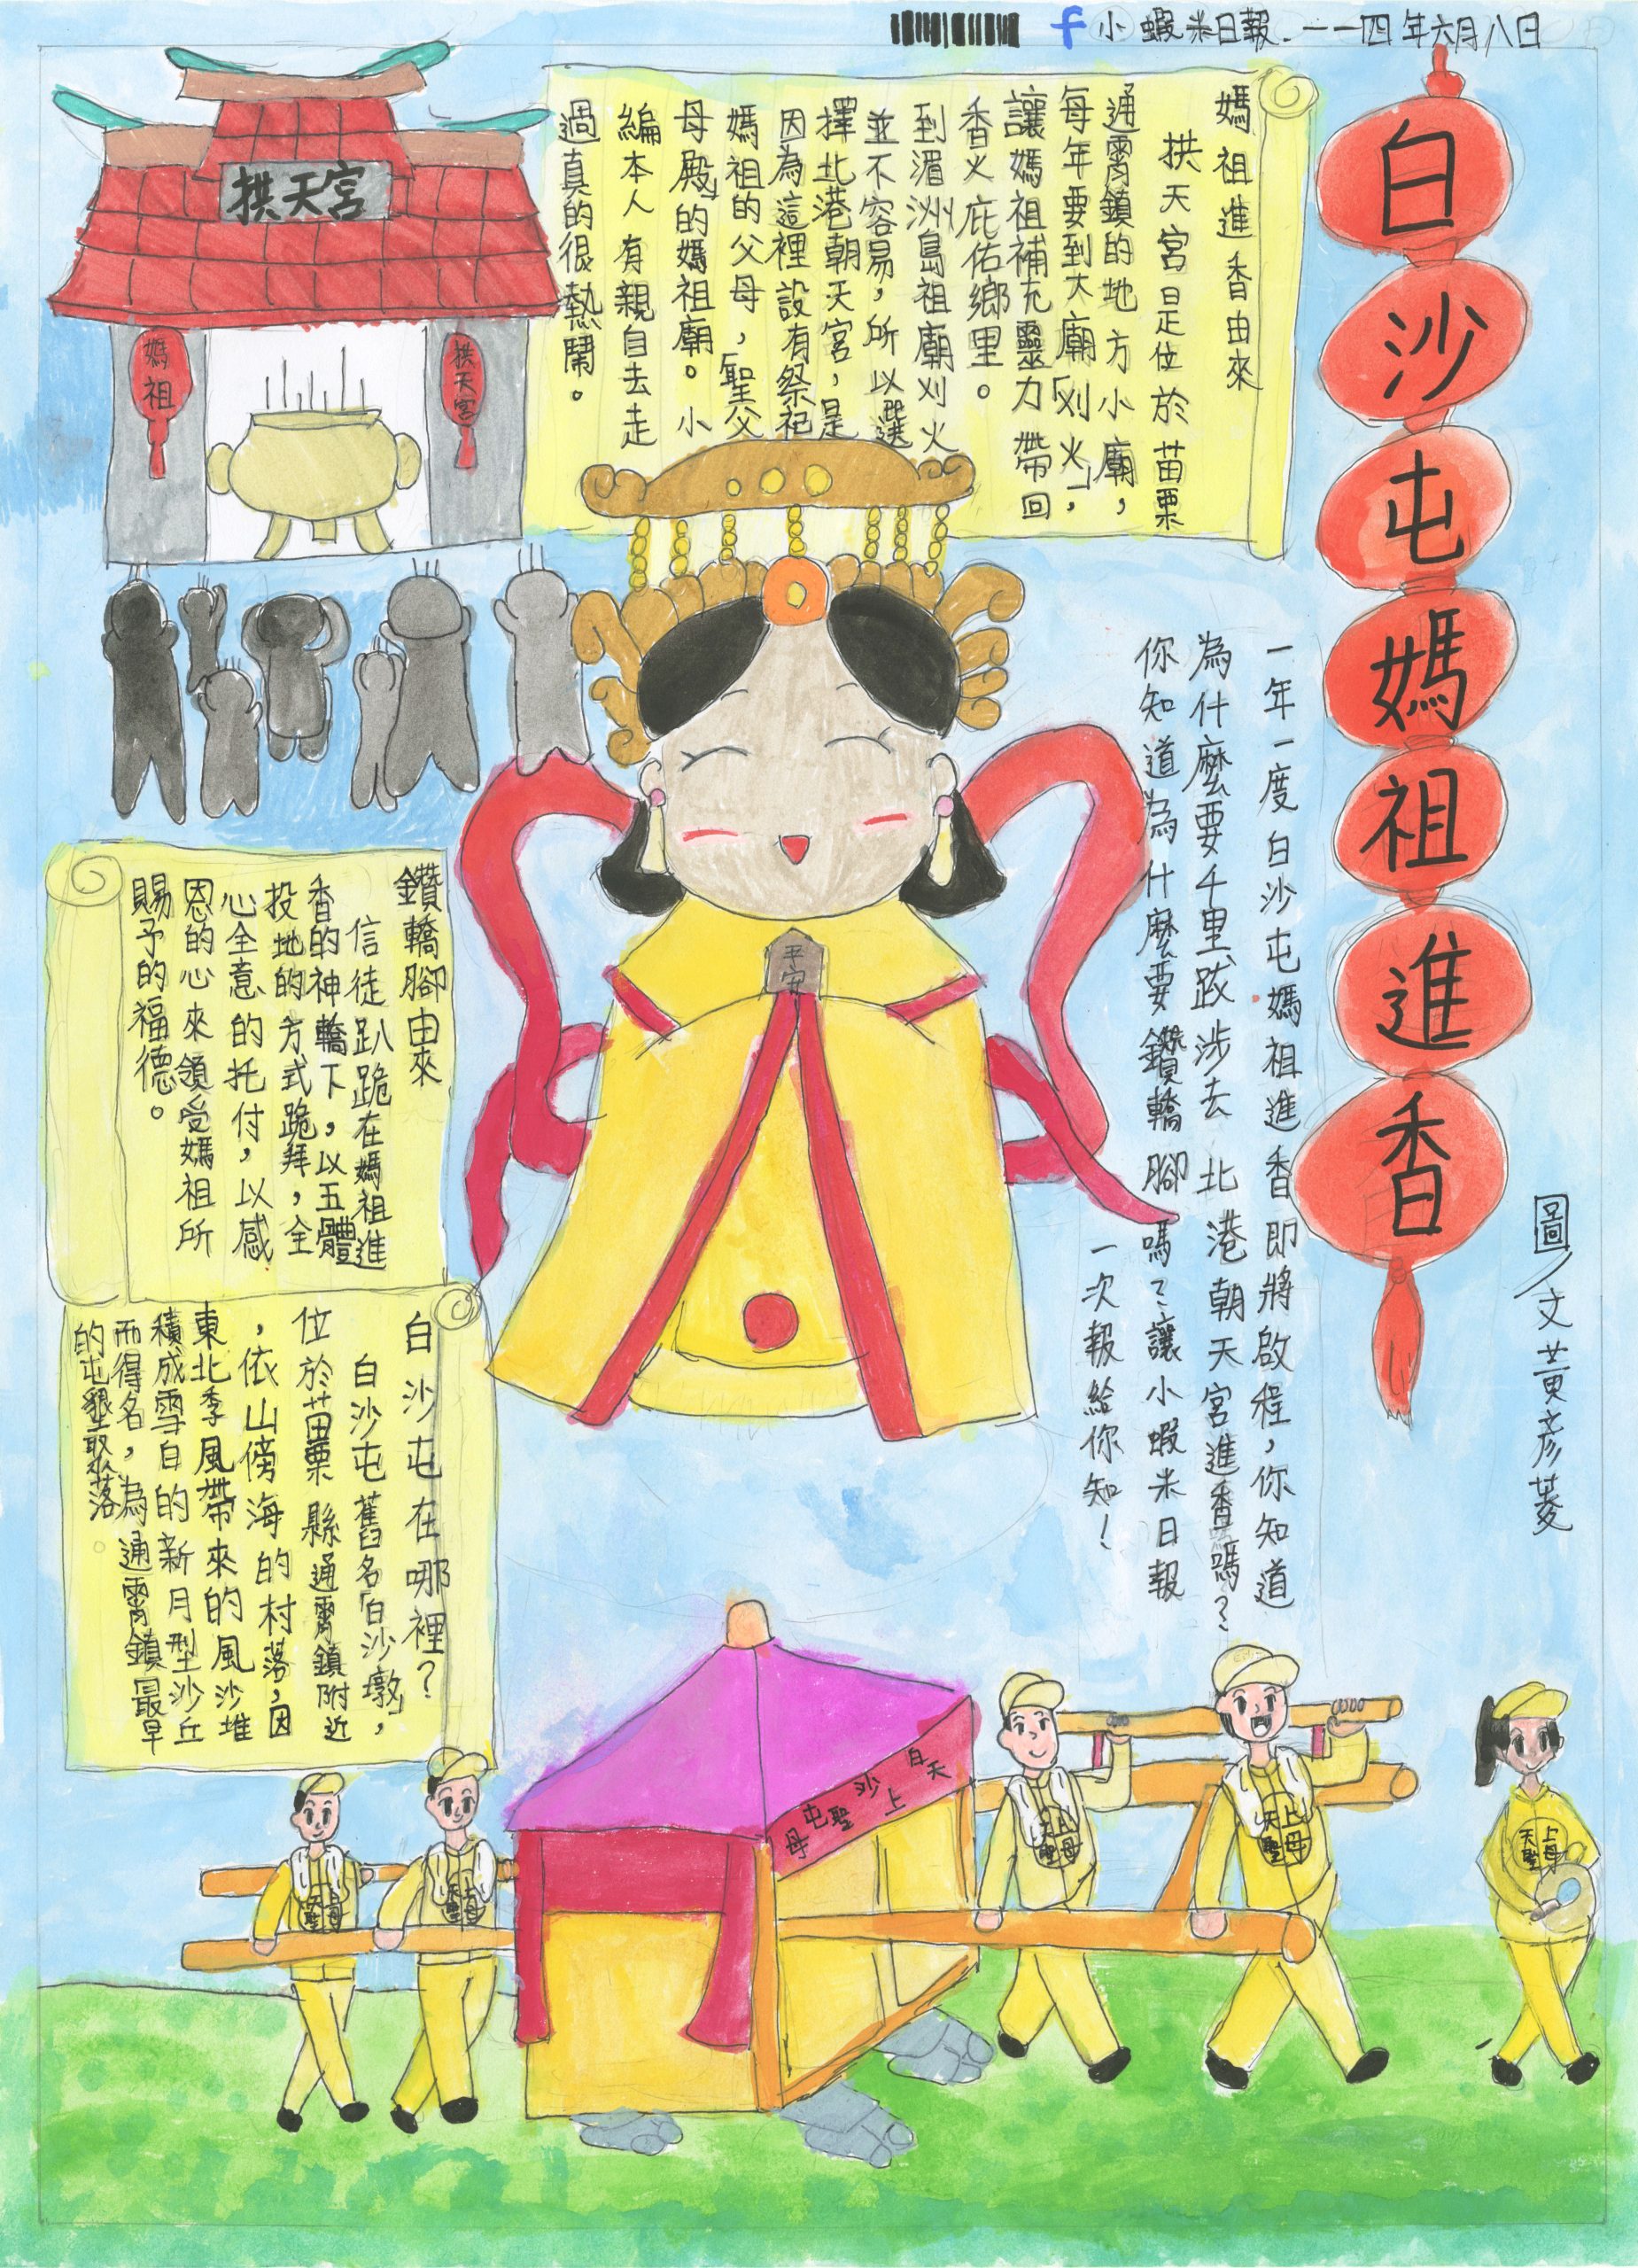 小蝦米日報 一一四年六月八日
白沙屯媽祖進香
圖/文 黃彥菱
一年一度白沙屯媽祖進香即將啟程，你知道
為什麼要千里跋涉去北港朝天宮進香嗎？
你知道為什麼要鑽轎腳嗎？讓小蝦米日報
一次報給你知！
媽祖進香由來
拱天宮是位於苗栗
通霄鎮的地方小廟，
每年要到大廟「刈火」，
讓媽祖補充靈力帶回
香火庇佑鄉里。
到湄洲島祖廟刈火
並不容易，所以選
擇北港朝天宮，是
因為這裡設有祭祀
媽祖的父母，「聖父
母殿」的媽祖廟。小
編本人有親自去走
過真的很熱鬧。
拱天宮
媽祖
拱天宮
平安
鑽轎腳由來
信徒趴跪在媽祖進
香的神轎下，以五體
投地的方式跪拜，全
心全意的托付，以感
恩的心來領受媽祖所
賜予的福德。
白沙屯在哪裡？
白沙屯舊名「白沙墩」，
位於苗栗縣通霄鎮附近
，依山傍海的村落，因
東北季風帶來的風沙堆
積成雪白的新月型沙丘
而得名，為通霄鎮最早
的屯墾聚落。
白沙屯
天上聖母
天上聖母
天上聖母
天上聖母
天上聖母
天上聖母